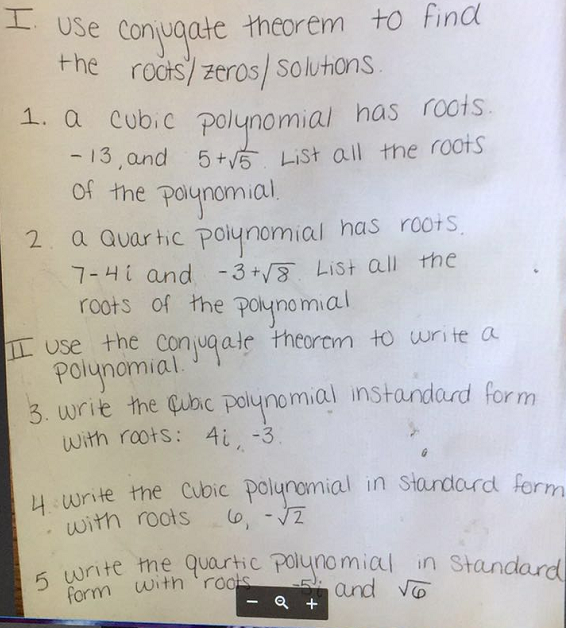 I. use conjugate theorem to find
the roots/zeros/solutions.
1. a cubic polynomial has roots.
-13, and 5+√5. List all the roots
of the polynomial.
2. a Quartic polynomial has roots.
7-4i and -3+√8. List all the
roots of the polynomial
II use the conjugate theorem to write a
polynomial.
3. write the cubic polynomial instandard form
with roots: 4i, -3.
4. write the cubic polynomial in standard form
with roots 6, -√2
5 write the quartic polynomial in standard
form with roots -5i and √6